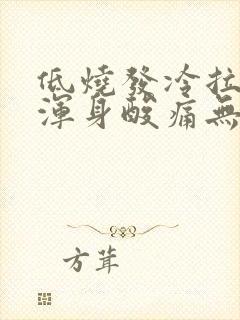 低燒發冷拉
渾身酸痛無
方茸